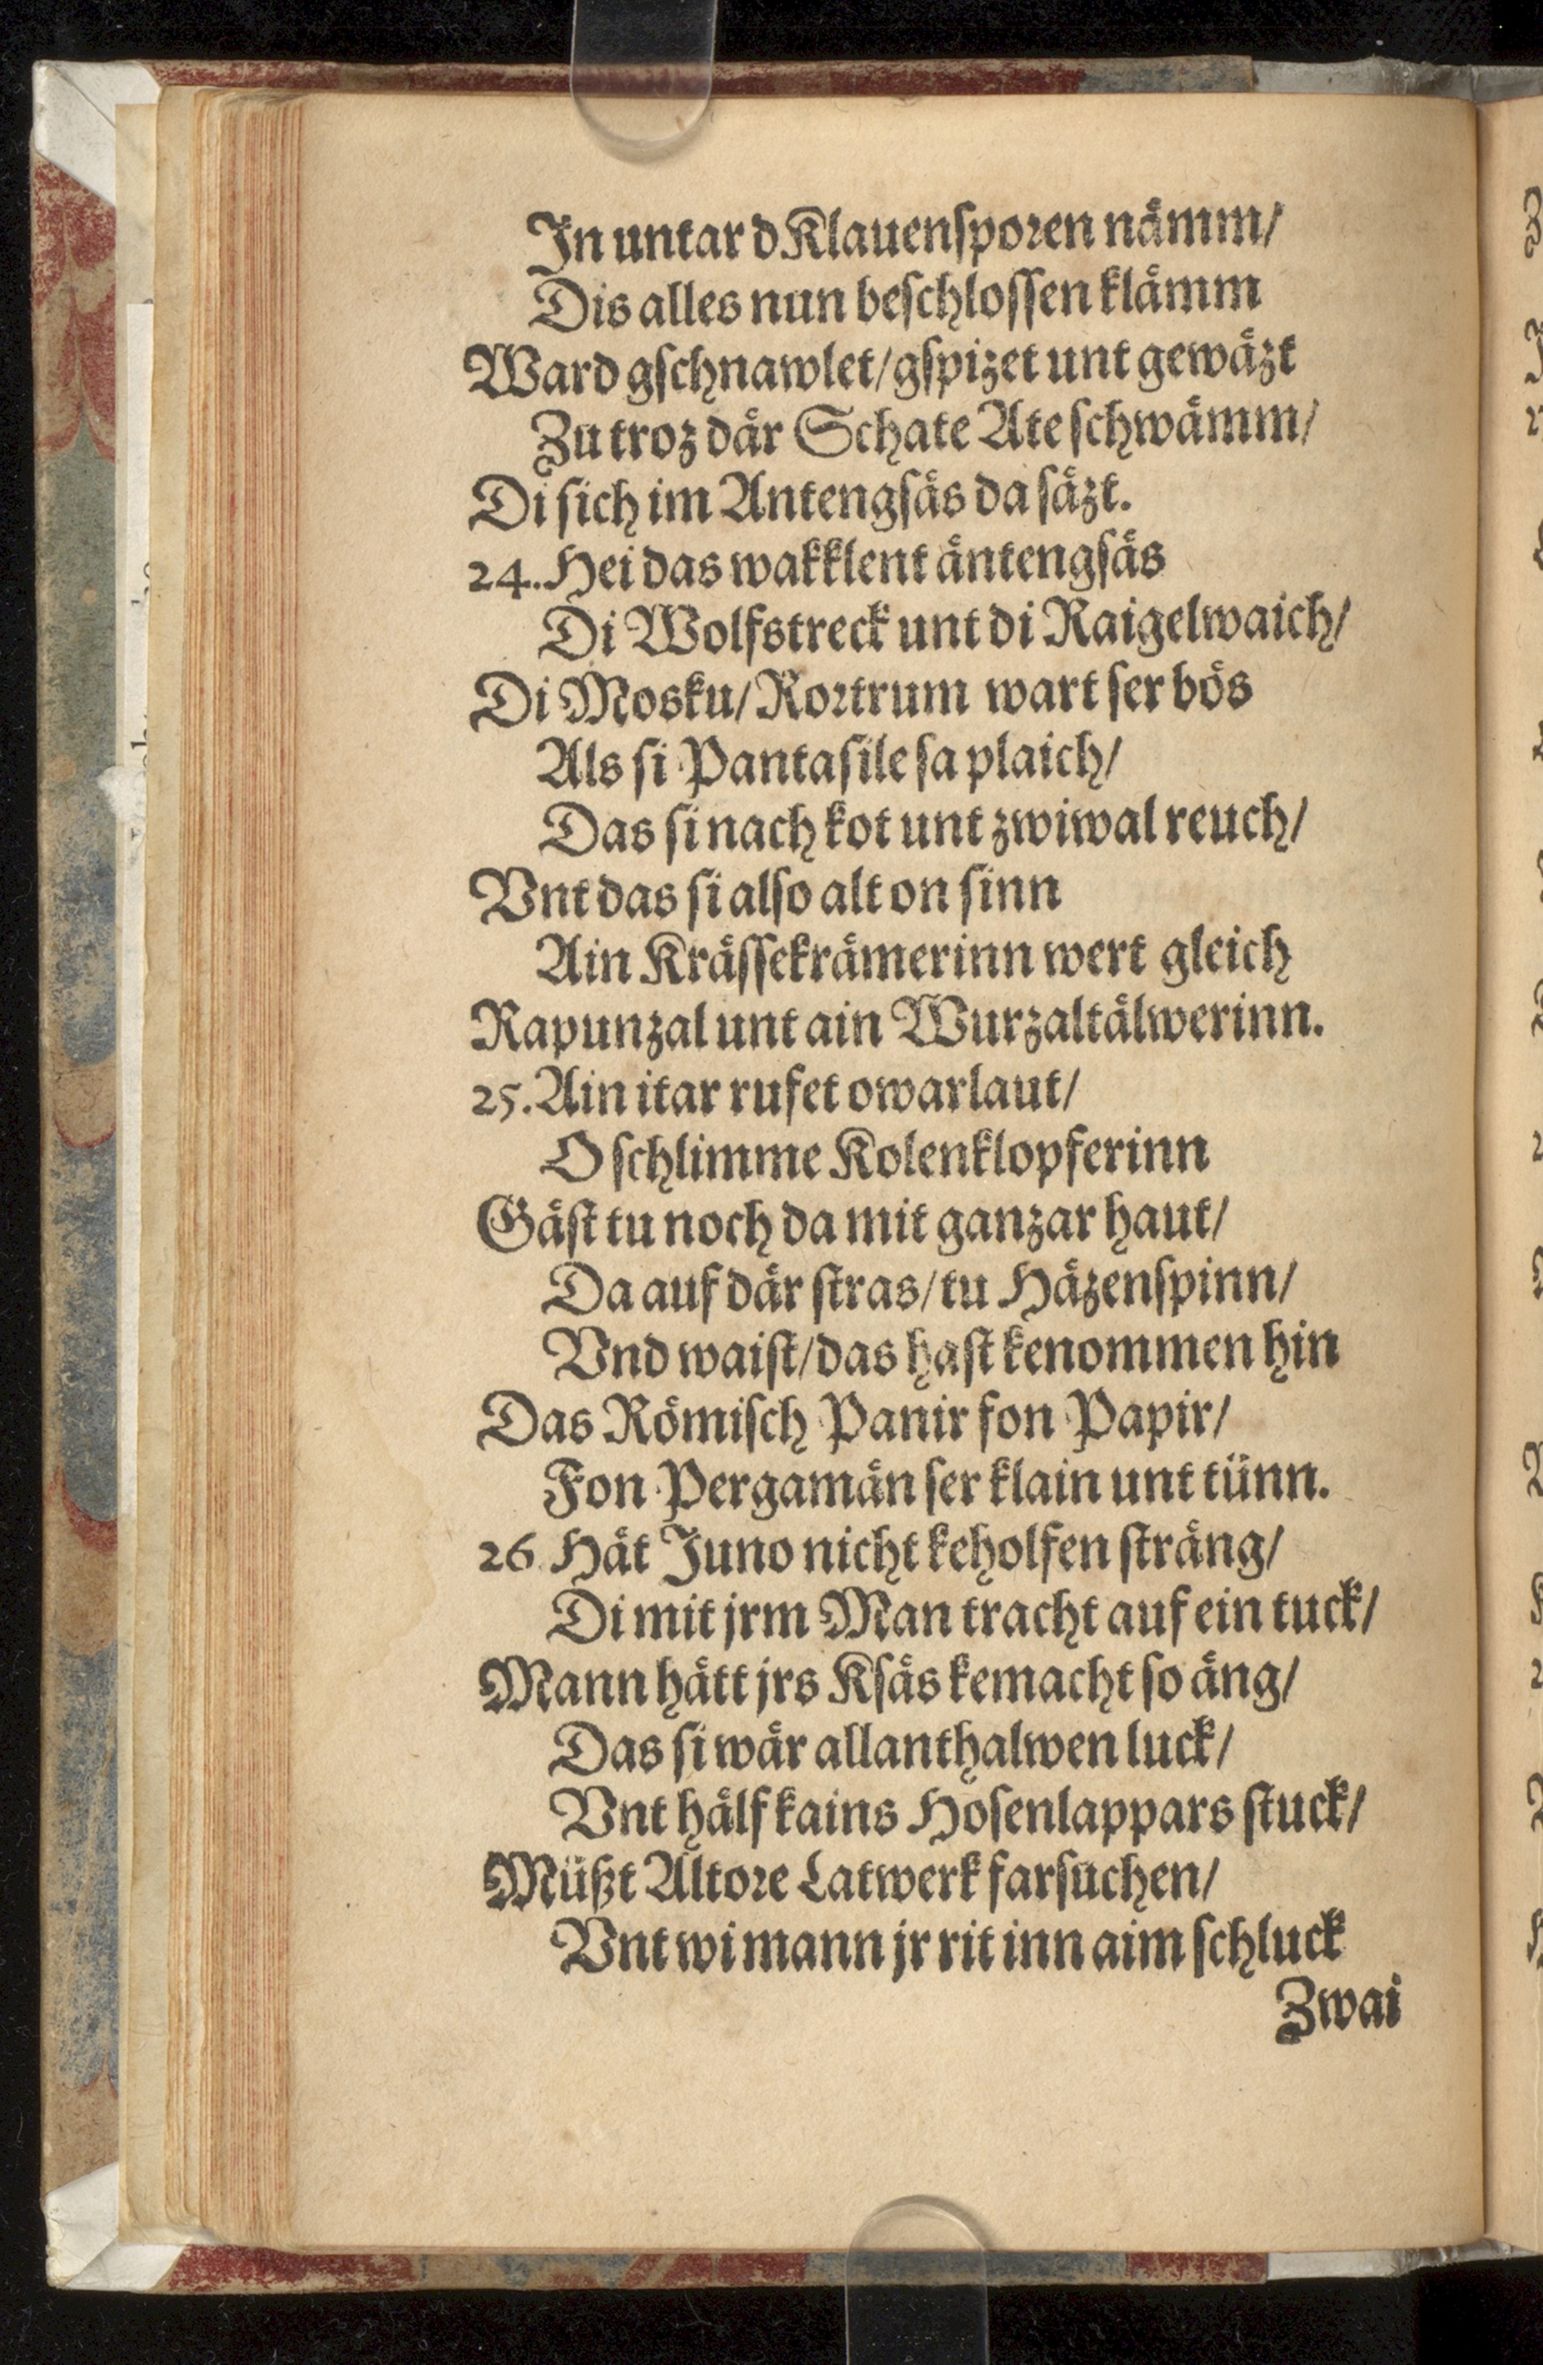 In untar d Klauensporen nämm/
Dis alles nun beschlossen klämm
Ward gschnawlet/gspizet unt gewäzt
Zu troz där Schate Ate schwämm/
Di sich im Antengsäs da säzt.
24. Hei das wakklent äntengsäs
Di Wolfstreck unt di Raigelwaich/
Di Mosku/Rortrum wart ser bös
Als si Pantasilesa plaich/
Das si nach kot unt zwiwal reuch/
Vnt das si also alt on sinn
Ain Krässekrämerinn wert gleich
Rapunzal unt ain Wurzaltälwerinn.
25. Ain itar rufet owarlaut/
O schlimme Kolenklopferinn
Gäst tu noch da mit ganzar haut/
Da auf där stras/tu Häzenspinn/
Vnd waist/das hast kenommen hin
Das Römisch Panir fon Papir/
Fon Pergamän ser klain unt tünn.
26 Hät Juno nicht keholfen sträng/
Di mit jrm Man tracht auf ein tuck/
Mann hätt jrs Ksäs kemacht so äng/
Das si wär allanthalwen luck/
Vnt hälf kains Hosenlappars stuck/
Müßt Altore Latwerk farsuchen/
Vnt wi mann jr rit inn aim schluck
Zwai